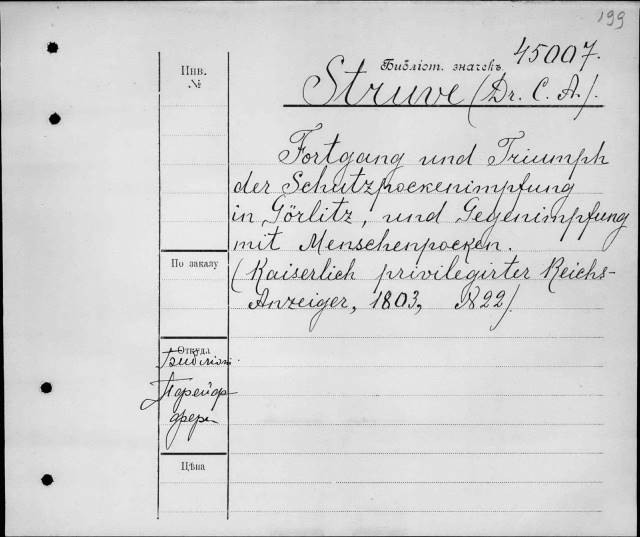 199
Инв.
№
Библіот. значекъ 45007.
Struve (Dr. C. A.).
Fortgang und Triumph
der Schutzpockenimpfung
in Görlitz, und Gegenimpfung
mit Menschenpocken.
(Kaiserlich privilegirter Reichs-
Anzeiger, 1803, N22).
По заказу
Откуда
Библіот.
Пфейф-
фера
Цѣна